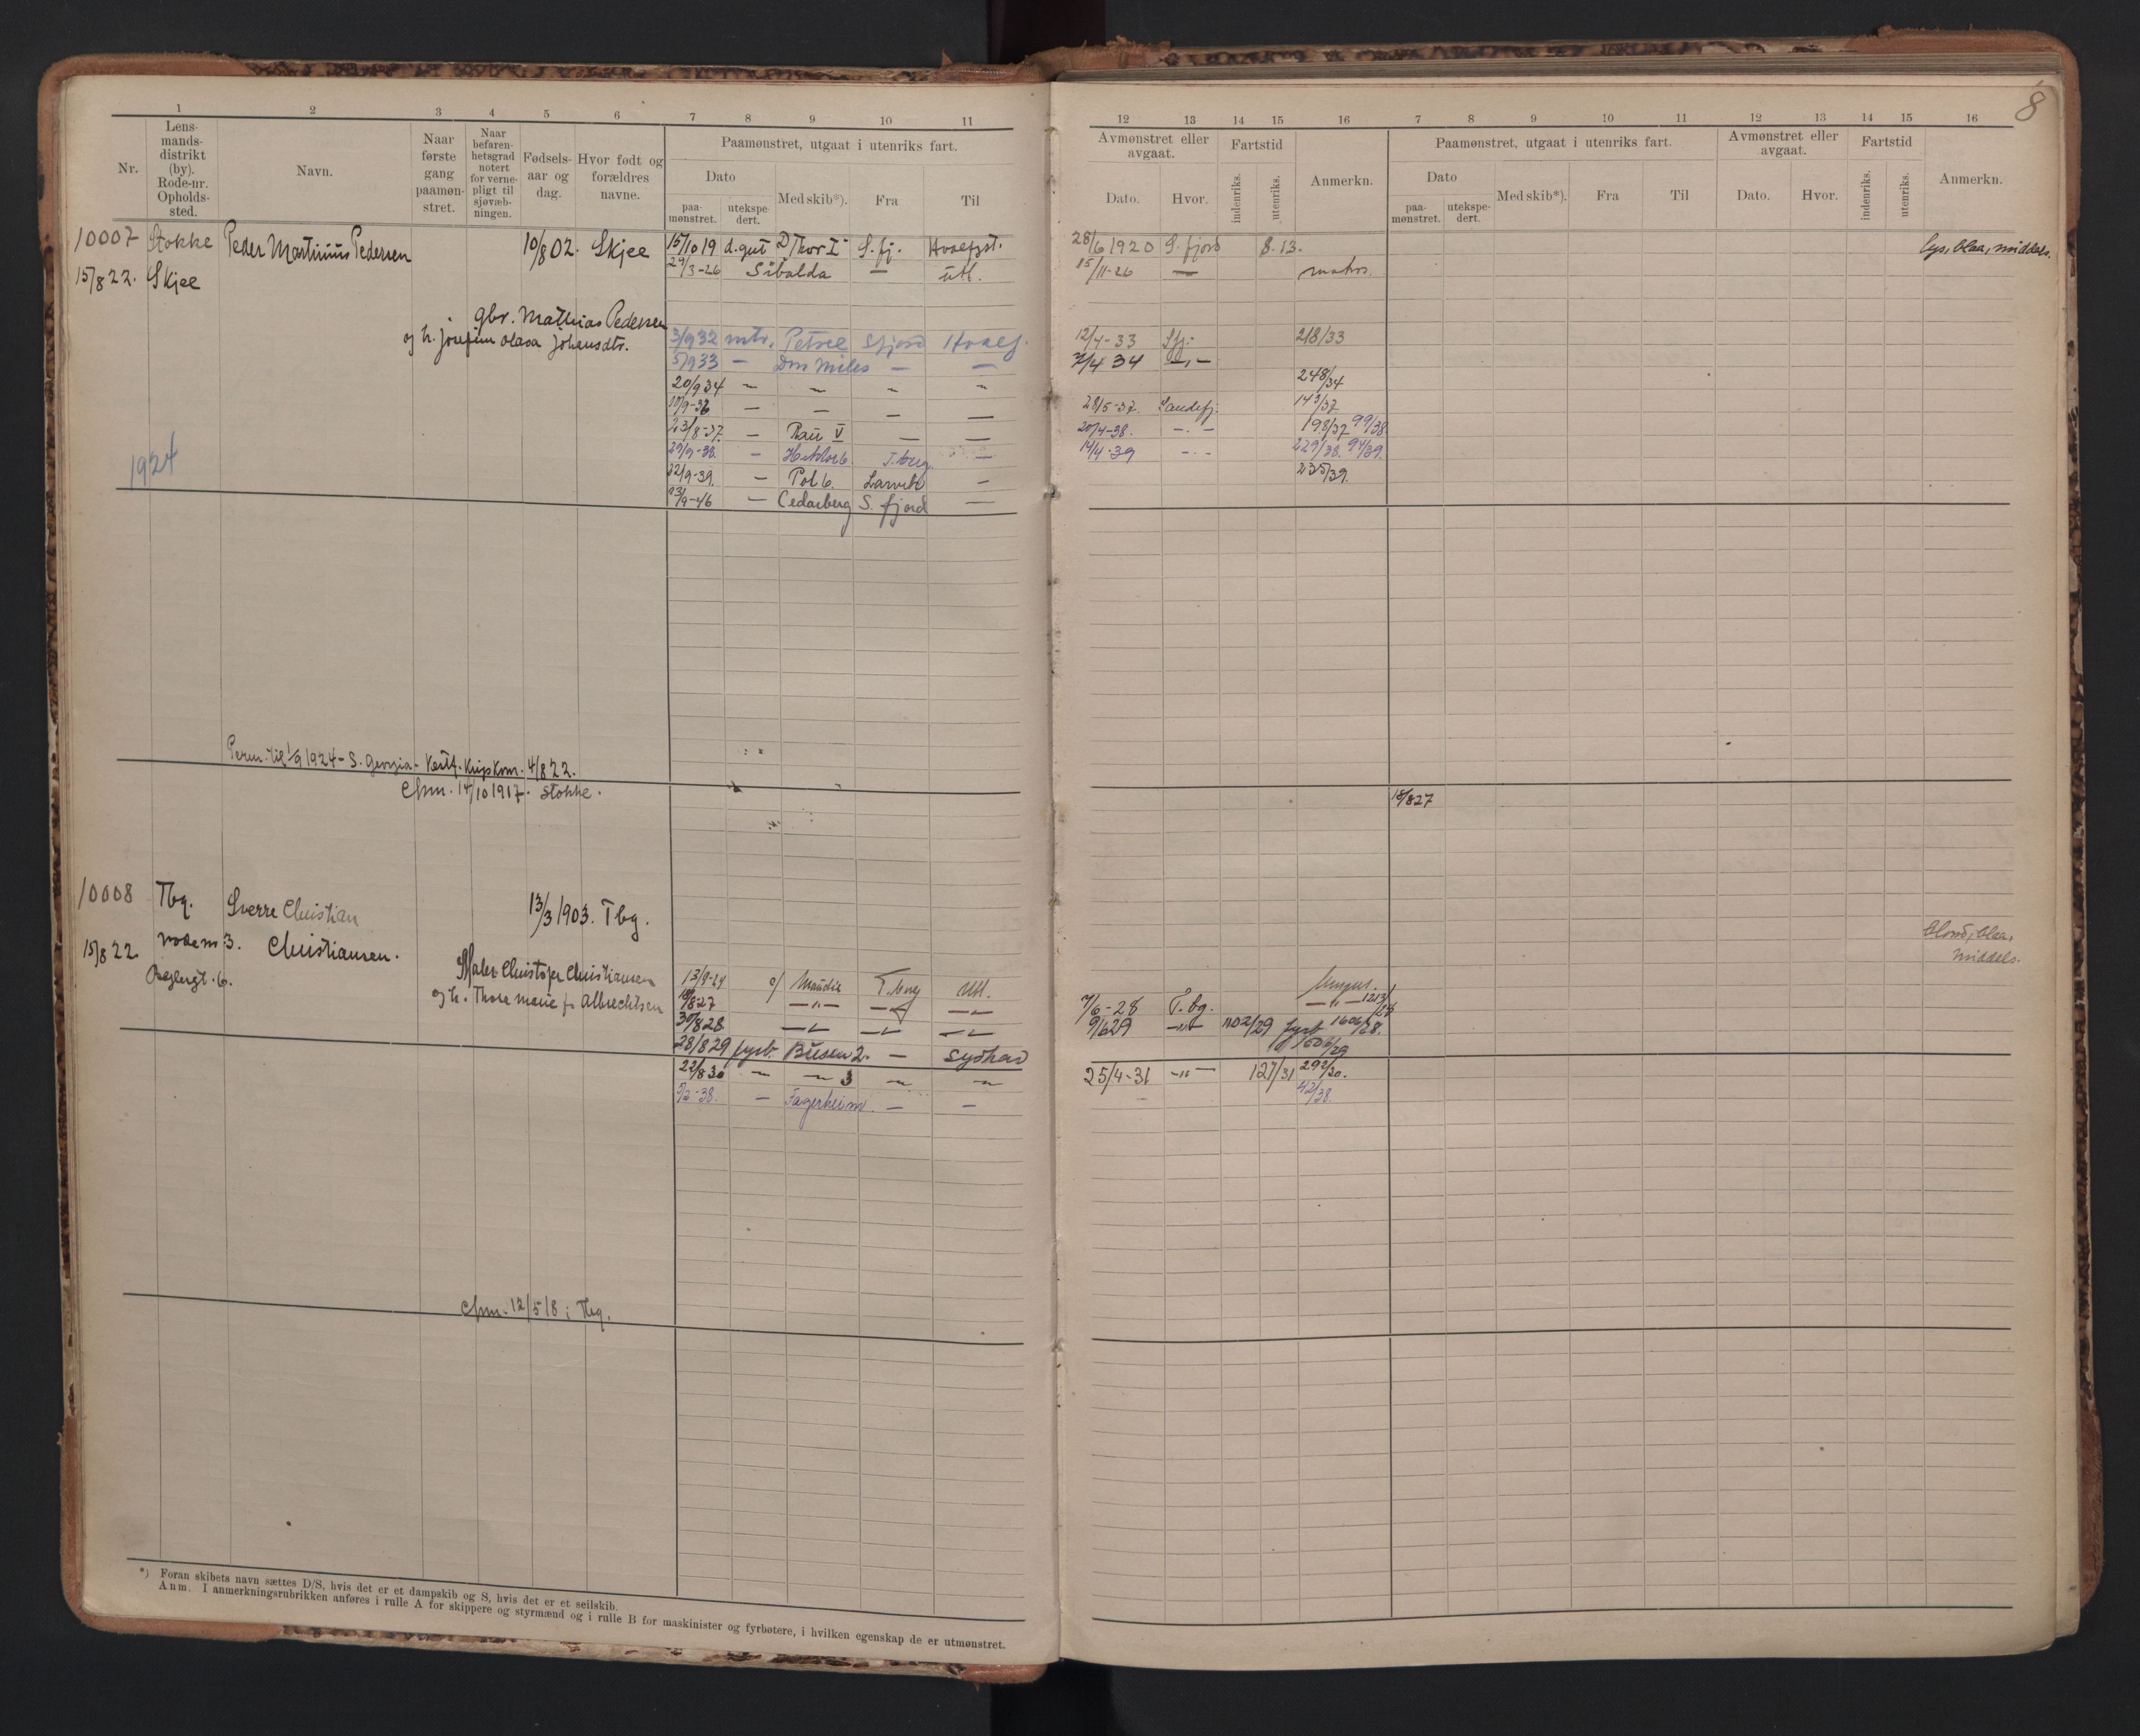 8
1 2 3 4 5 6 7 8 9 10 11
Nr.
Lens-
mands-
distrikt
(by).
Rode-nr.
Opholds-
sted.
Navn.
Naar
første
gang
paamøn-
stret.
Naar
befaren-
hetsgrad
notert
for verne-
pligt til
sjøvæb-
ningen.
Fødsels-
aar og
dag.
Hvor født og
forældres
navne.
Paamønstret, utgaat i utenriks fart.
Dato
paa-
mønstret.
utekspe-
dert.
Med skib*).
Fra
Til
12 13 14 15 16 7 8 9 10 11 12 13 14 15 16
Avmønstret eller
avgaat.
Dato.
Hvor.
Fartstid
indenriks.
utenriks.
Anmerkn.
Paamønstret, utgaat i utenriks fart.
Dato
paa-
mønstret.
utekspe-
dert.
Med skib*).
Fra
Til
Avmønstret eller
avgaat.
Dato.
Hvor.
Fartstid
indenriks.
utenriks.
Anmerkn.
10007 Stokke Peder Martinius Pedersen 10/8 02. Skjee 15/10 19 d.gut D Thor I S. fj. Hvalfgst. 28/6 1920 S. fjord 8. 13. lys, blaa, middels.
15/8 22. Skjee 29/3-26 Sibalda — utl. 15/11-26 — matros.
gbr. Mathias Pedersen
og h. Josefine Olava Johansdtr.
3/9 32 mtr. Petrel Sfjord Hvalf. 12/4-33 Sfj. 218/33
5/9 33 — Don Miles — — 7/4 34 —"—
20/9 34 — — — — 248/34
10/9-36 — — — — 28/5-37. Sandefj. 143/37
23/8-37 — Rau V — — 20/4-38. —.— 198/37 99/38
29/9-38. — Hektor 6. T.berg. — 14/4-39 —.— 229/38. 94/39.
1924
22/9-39. — Pol 6. Larvik — 235/39.
23/9-46 — Cedarberg S. fjord —
Perm. til 1/9 1924 - S. Georgia - 4/8 22.
14/10 1917. Stokke.
18/8 27
10008 Tbg. Sverre Christian 13/3 1903. Tbg.
15/8 22. rode nr 3. Christiansen.
6.
Maler Christofer Christiansen
og h. Thora Marie f. Albrechtsen
blond, blaa,
middels.
13/9-24 Maudie T.berg Utl.
18/8 27 —"— — — 7/6-28 T.bg. —"— 1213/28
30/8 28 — — — 9/6 29 —"— 1102/29 fyrb 1606/28.
28/8 29 fyrb. Busen 2. — Sydhav 1606/29
22/8 30 — — 3 — — 25/4-31 —"— 127/31 292/30.
5/2-38. — Fagerheim. — — 42/38.
12/5 18 i Tbg.
*) Foran skibets navn sættes D/S, hvis det er et dampskib og S, hvis det er et seilskib.
Anm. I anmerkningsrubrikken anføres i rulle A for skippere og styrmænd og i rulle B for maskinister og fyrbøtere, i hvilken egenskap de er utmønstret.